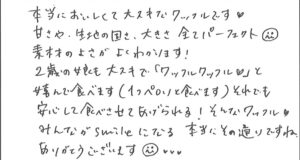 本当においしくて大スキなワッフルです♥
甘さや、生地の固さ、大きさ 全てパーフェクト☺
素材のよさがよくわかります!
2歳の娘も大スキで「ワッフルワッフル♥」と
喜んで食べます(1コペロっと食べます)それでも
安心して食べさせてあげられる!そんなワッフル♥
みんながsmileになる 本当にその通りですね。
ありがとうございます☺♥♥♥